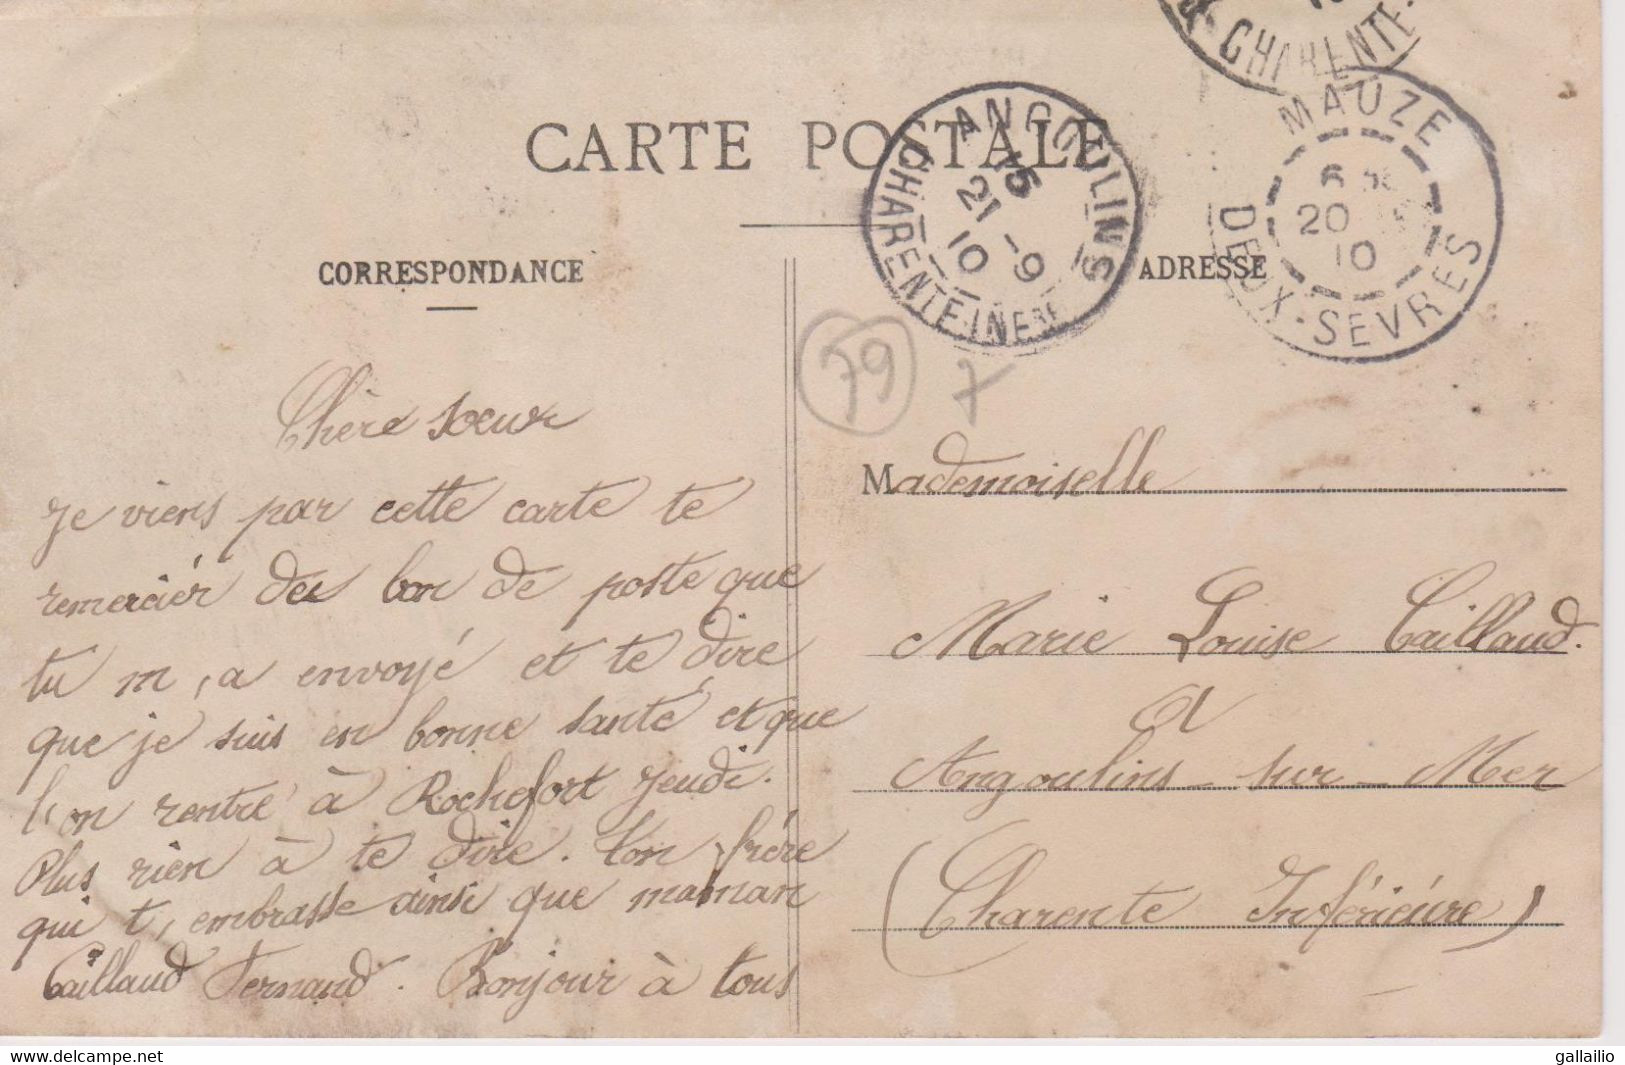 CHARENTE-
CARTE POSTALE
ANGOULINS
15
21 - 9
10
CHARENTE-INFRE
MAUZE
6
20
10
DEUX-SEVRES
CORRESPONDANCE
ADRESSE
79
7
Chère soeur
Je viens par cette carte te
remerciér des bon de poste que
tu m,a envoyé et te dire
que je suis en bonne santé et que
l'on rentre à Rochefort jeudi.
Plus rien à te dire. Ton frére
qui t, embrasse ainsi que maman
Caillaud Fernand. Bonjour à tous
Mademoiselle
Marie Louise Caillaud.
a
Angoulins - sur - Mer
(Charente Inférieure)
delcampe.net
gallailio